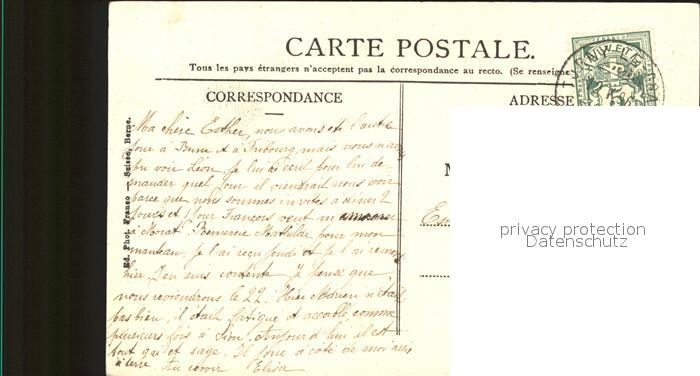 CARTE POSTALE.
Tous les pays étrangers n'acceptent pas la correspondance au recto. (Se renseigne
CORRESPONDANCE
ADRESSE
Ed. Phot. Franco — Suisse, Berne.
Ma chère Esther, nous avons été l'autre
jour à Berne et à Fribourg, mais nous n'av
pu voir Léon. Je lui ai écrit pour lui de-
mander quel jour il viendrait nous voir
parce que nous sommes invités à dîner 2
jours et pour François veut m'amener
à Morat. Remercie Mathilde pour mon
manteau. Je l'ai reçu jeudi et je l'ai remis
hier. J'en suis contente. Je pense que
nous reviendrons le 22. Hier Adrien n'était
pas bien, il était fatigué et accablé comme
plusieurs fois à Sion. Aujourd'hui il est
tout gai et sage. Il joue à côté de moi assis
à terre. Au revoir Elisa
M
Es
privacy protection
Datenschutz